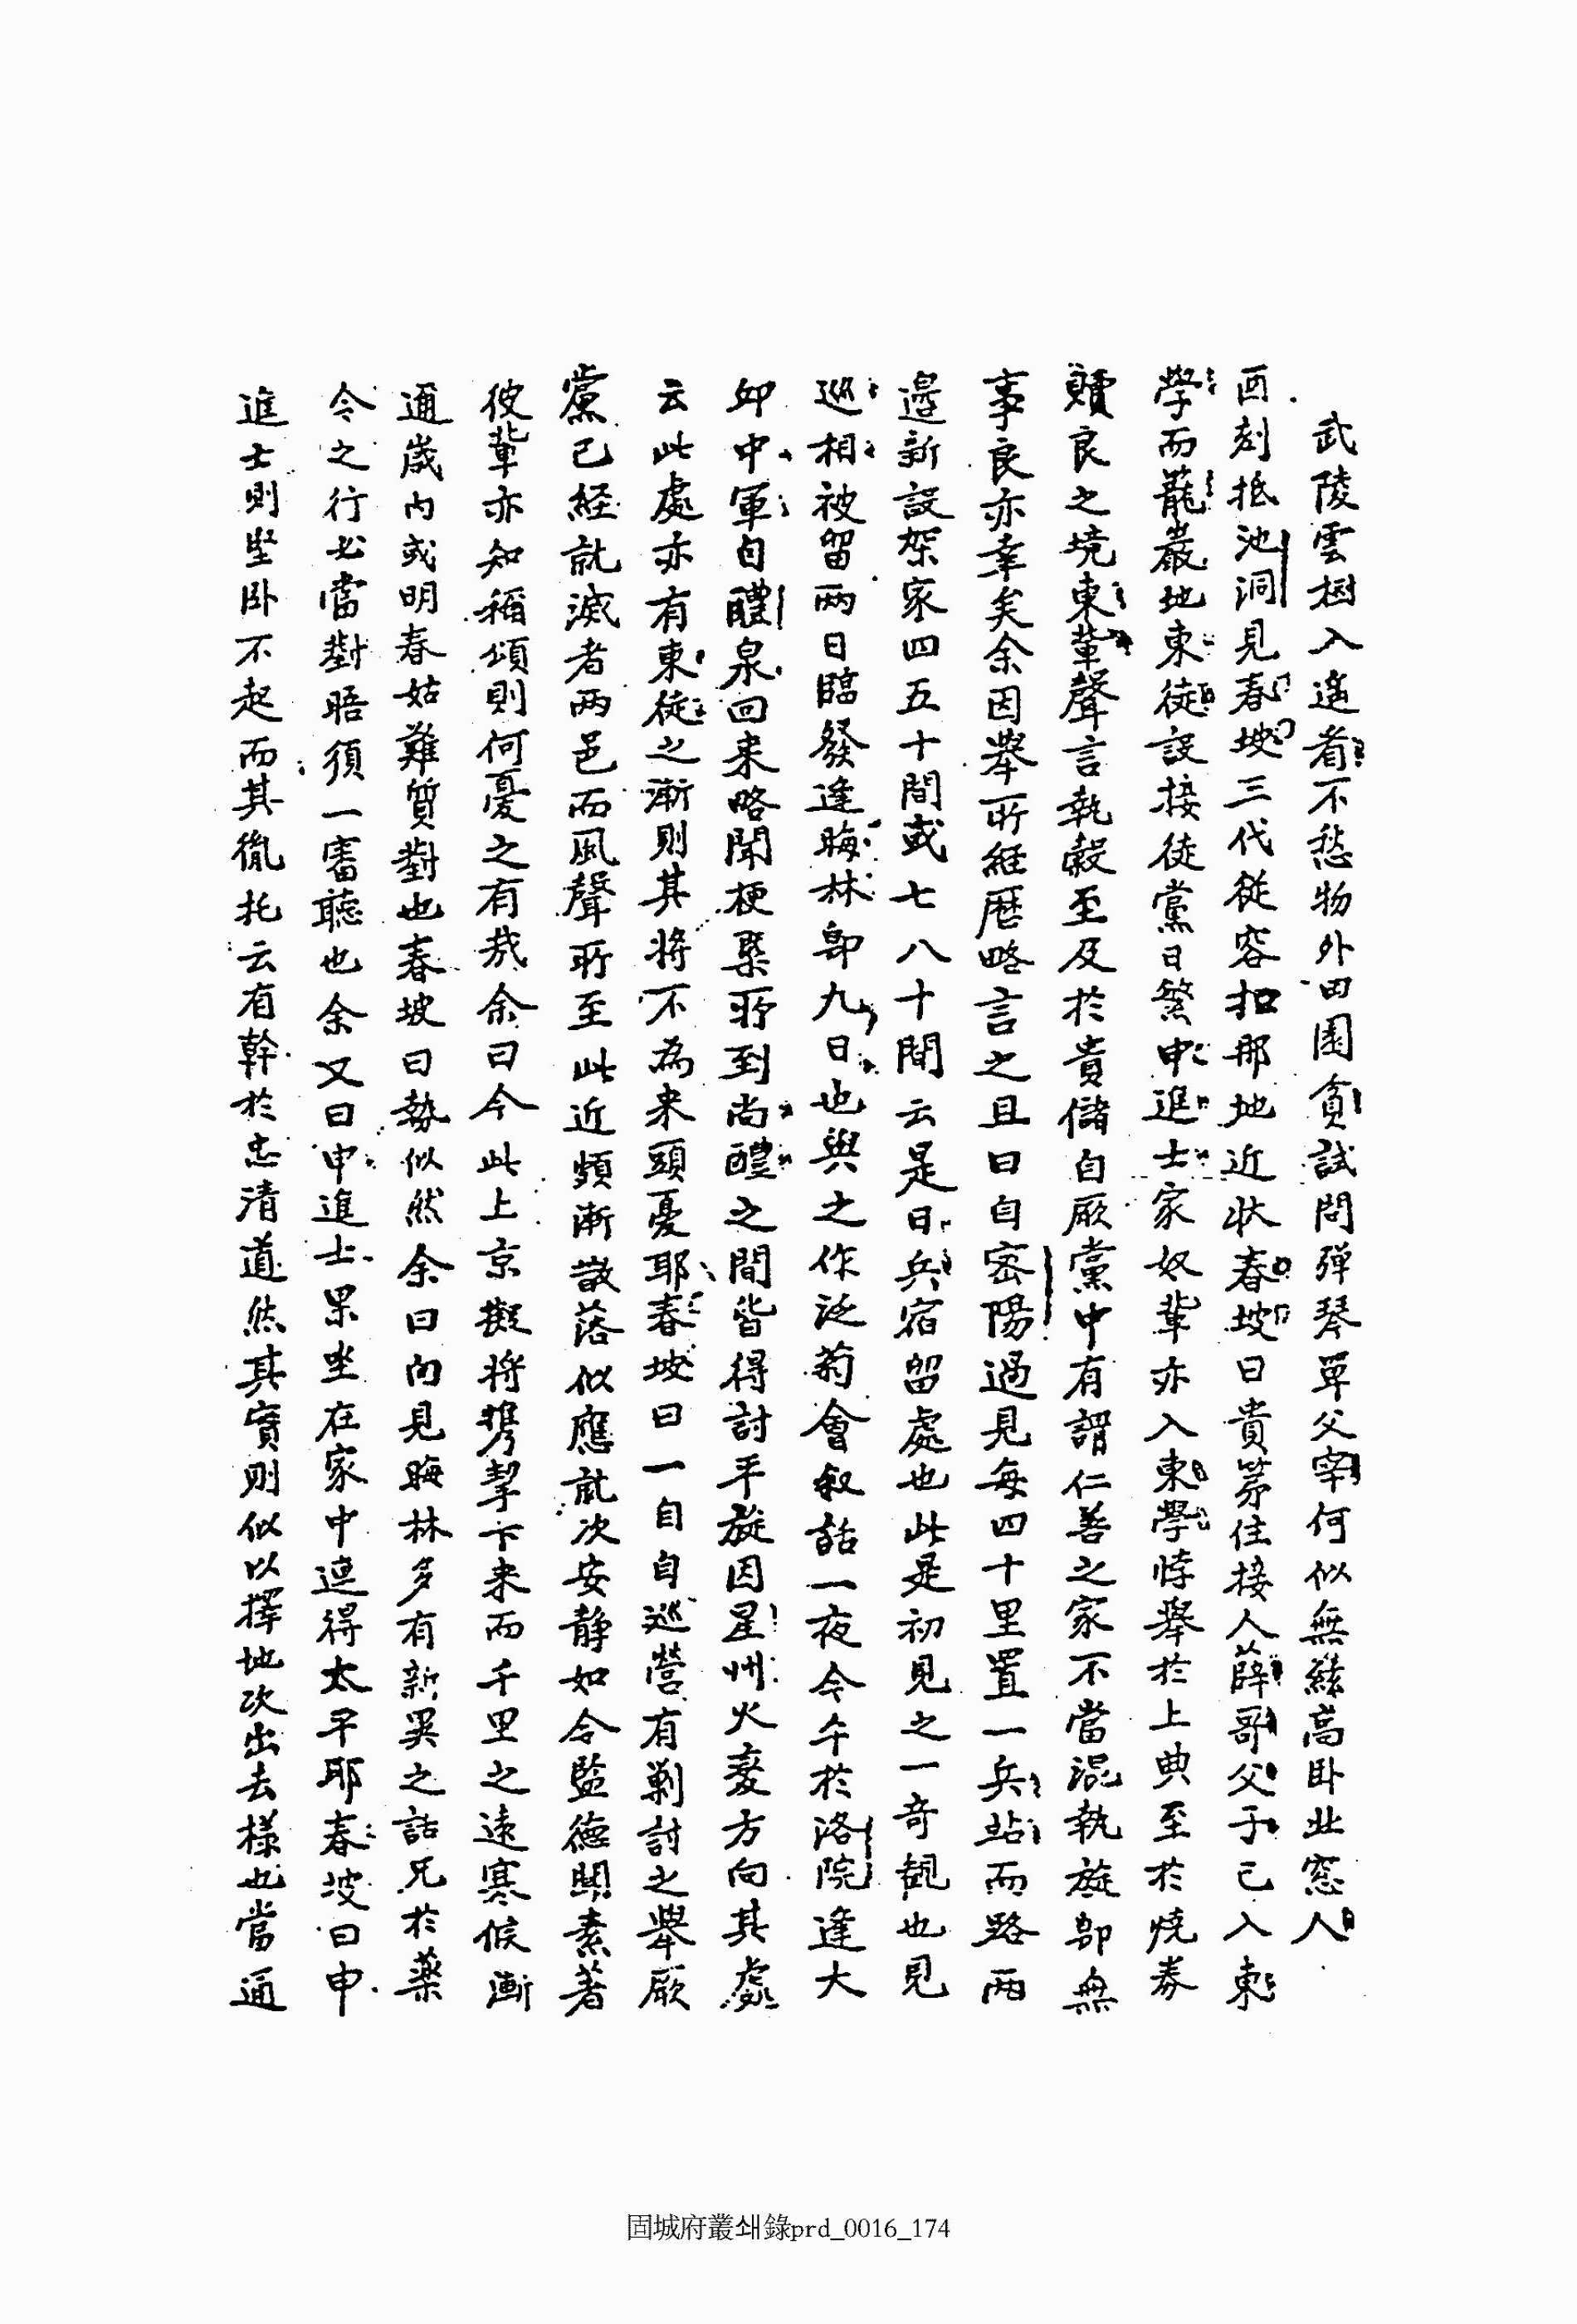 武陵雲樹入遙看不愁物外田園貧試問彈琴單父宰何似無絃高臥北窓人
酉刻抵池洞見春坡三代從容扣那地近狀春坡曰貴第住接人薛哥父子已入東
學而蘢巖地東徒設接徒黨日繁申進士家奴輩亦入東學悖舉於上典至於燒券
贖良之境東輩聲言執穀至及於貴儲自厥黨中有謂仁善之家不當混執旋卽無
事良亦幸矣余因舉所經歷略言之且曰自密陽過見每四十里置一兵站而路兩
邊新設架家四五十間或七八十間云是日兵宿留處也此是初見之一奇觀也見
巡相被留兩日臨發逢晦林卽九日也與之作泛菊會叙話一夜今午於洛院逢大
邱中軍自醴泉回来略聞梗槩所到尚醴之間皆得討平旋因星州火變方向其處
云此處亦有東徒之漸則其將不為来頭憂耶春坡曰一自自巡營有剿討之舉厥
黨已経就滅者兩邑而風聲所至此近頗漸散落似應就次安靜如令監德聞素著
彼輩亦知稱頌則何憂之有哉余曰今此上京擬將携挈卞来而千里之遠寒候漸
逼歲內或明春姑難質對也春坡曰勢似然余曰向見晦林多有新異之話兄於藥
令之行必當對晤須一審聽也余又曰申進士果坐在家中連得太平耶春坡曰申
進士則堅臥不起而其胤托云有幹於忠清道然其實則似以擇地次出去樣也當通
固城府叢쇄錄prd_0016_174